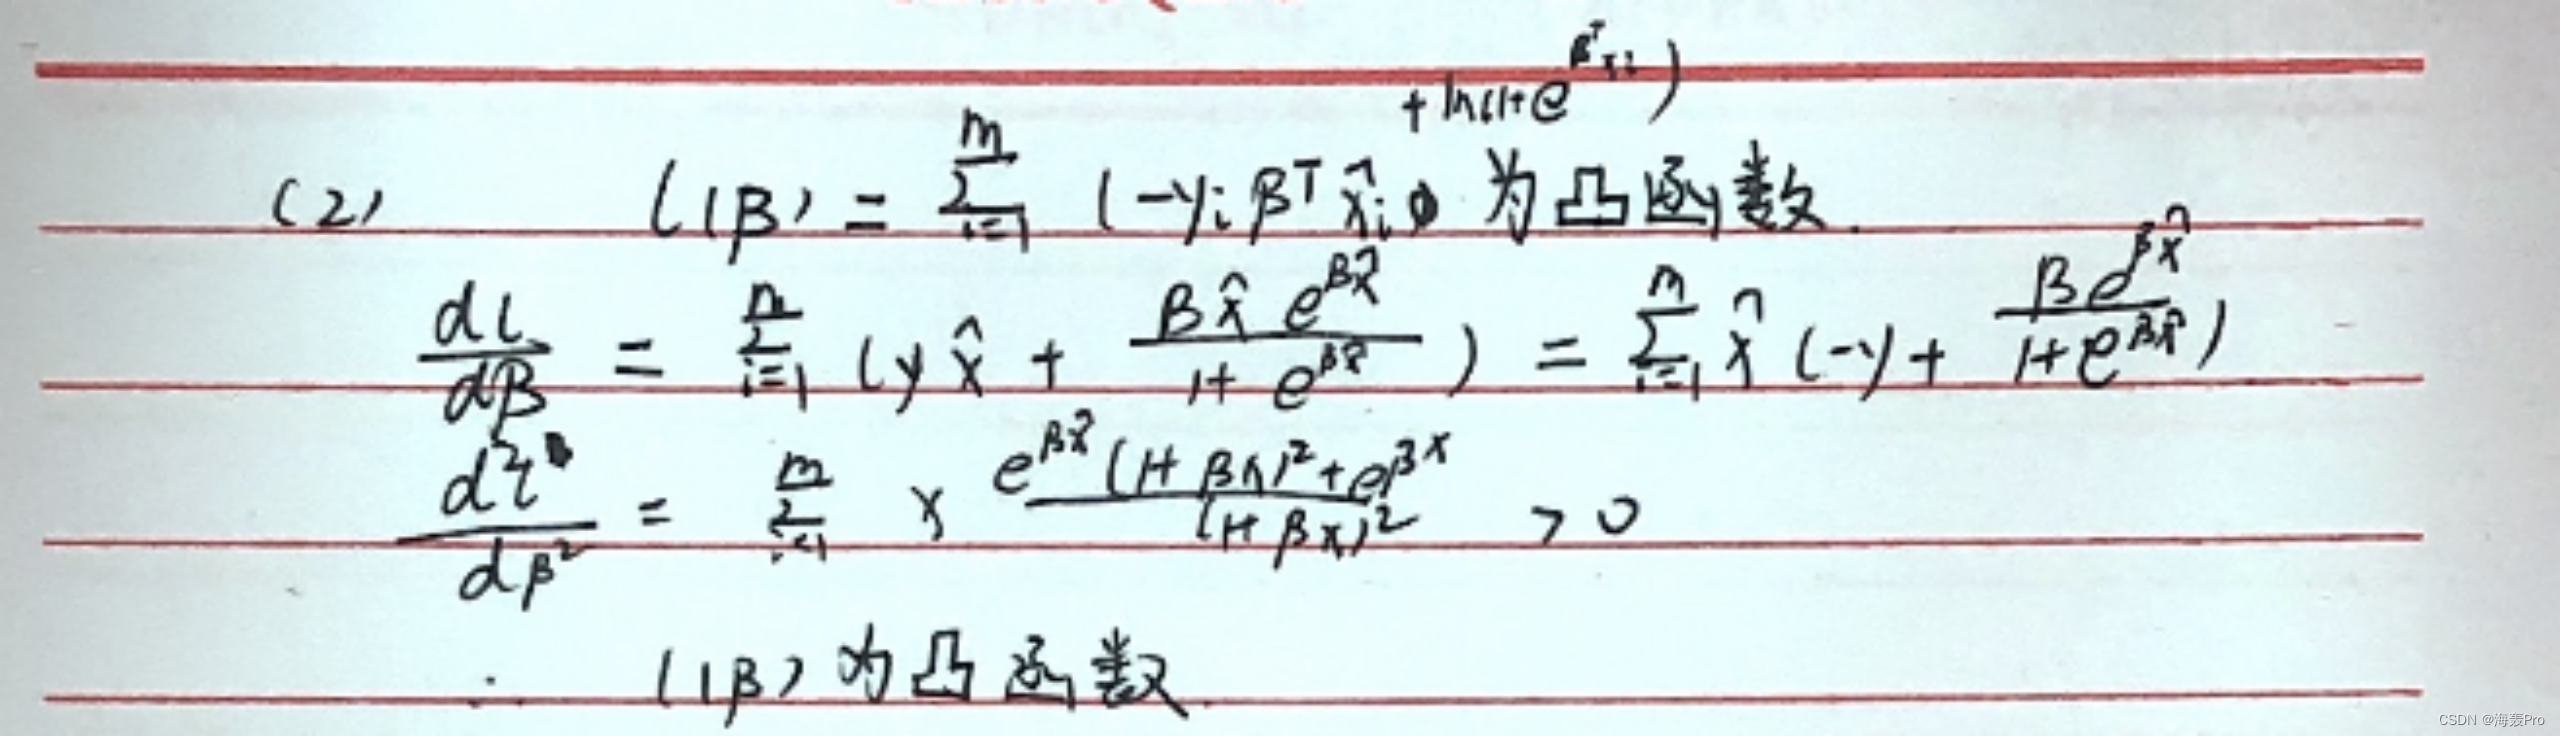 + ln(1+e^{β^T x_i})
(2) l(β) = \sum_{i=1}^{m} (-y_i β^T \hat{x}_i 为凸函数.
\frac{dl}{dβ} = \sum_{i=1}^{m} (y\hat{x} + \frac{β\hat{x} e^{β\hat{x}}}{1+e^{β\hat{x}}}) = \sum_{i=1}^{m} \hat{x} (-y + \frac{β e^{β\hat{x}}}{1+e^{β\hat{x}}})
\frac{d^2l}{dβ^2} = \sum_{i=1}^{m} x \frac{e^{β\hat{x}}(1+βx)^2+e^{βx}}{(1+βx)^2} > 0
∴ l(β) 为凸函数.
CSDN @海轰Pro